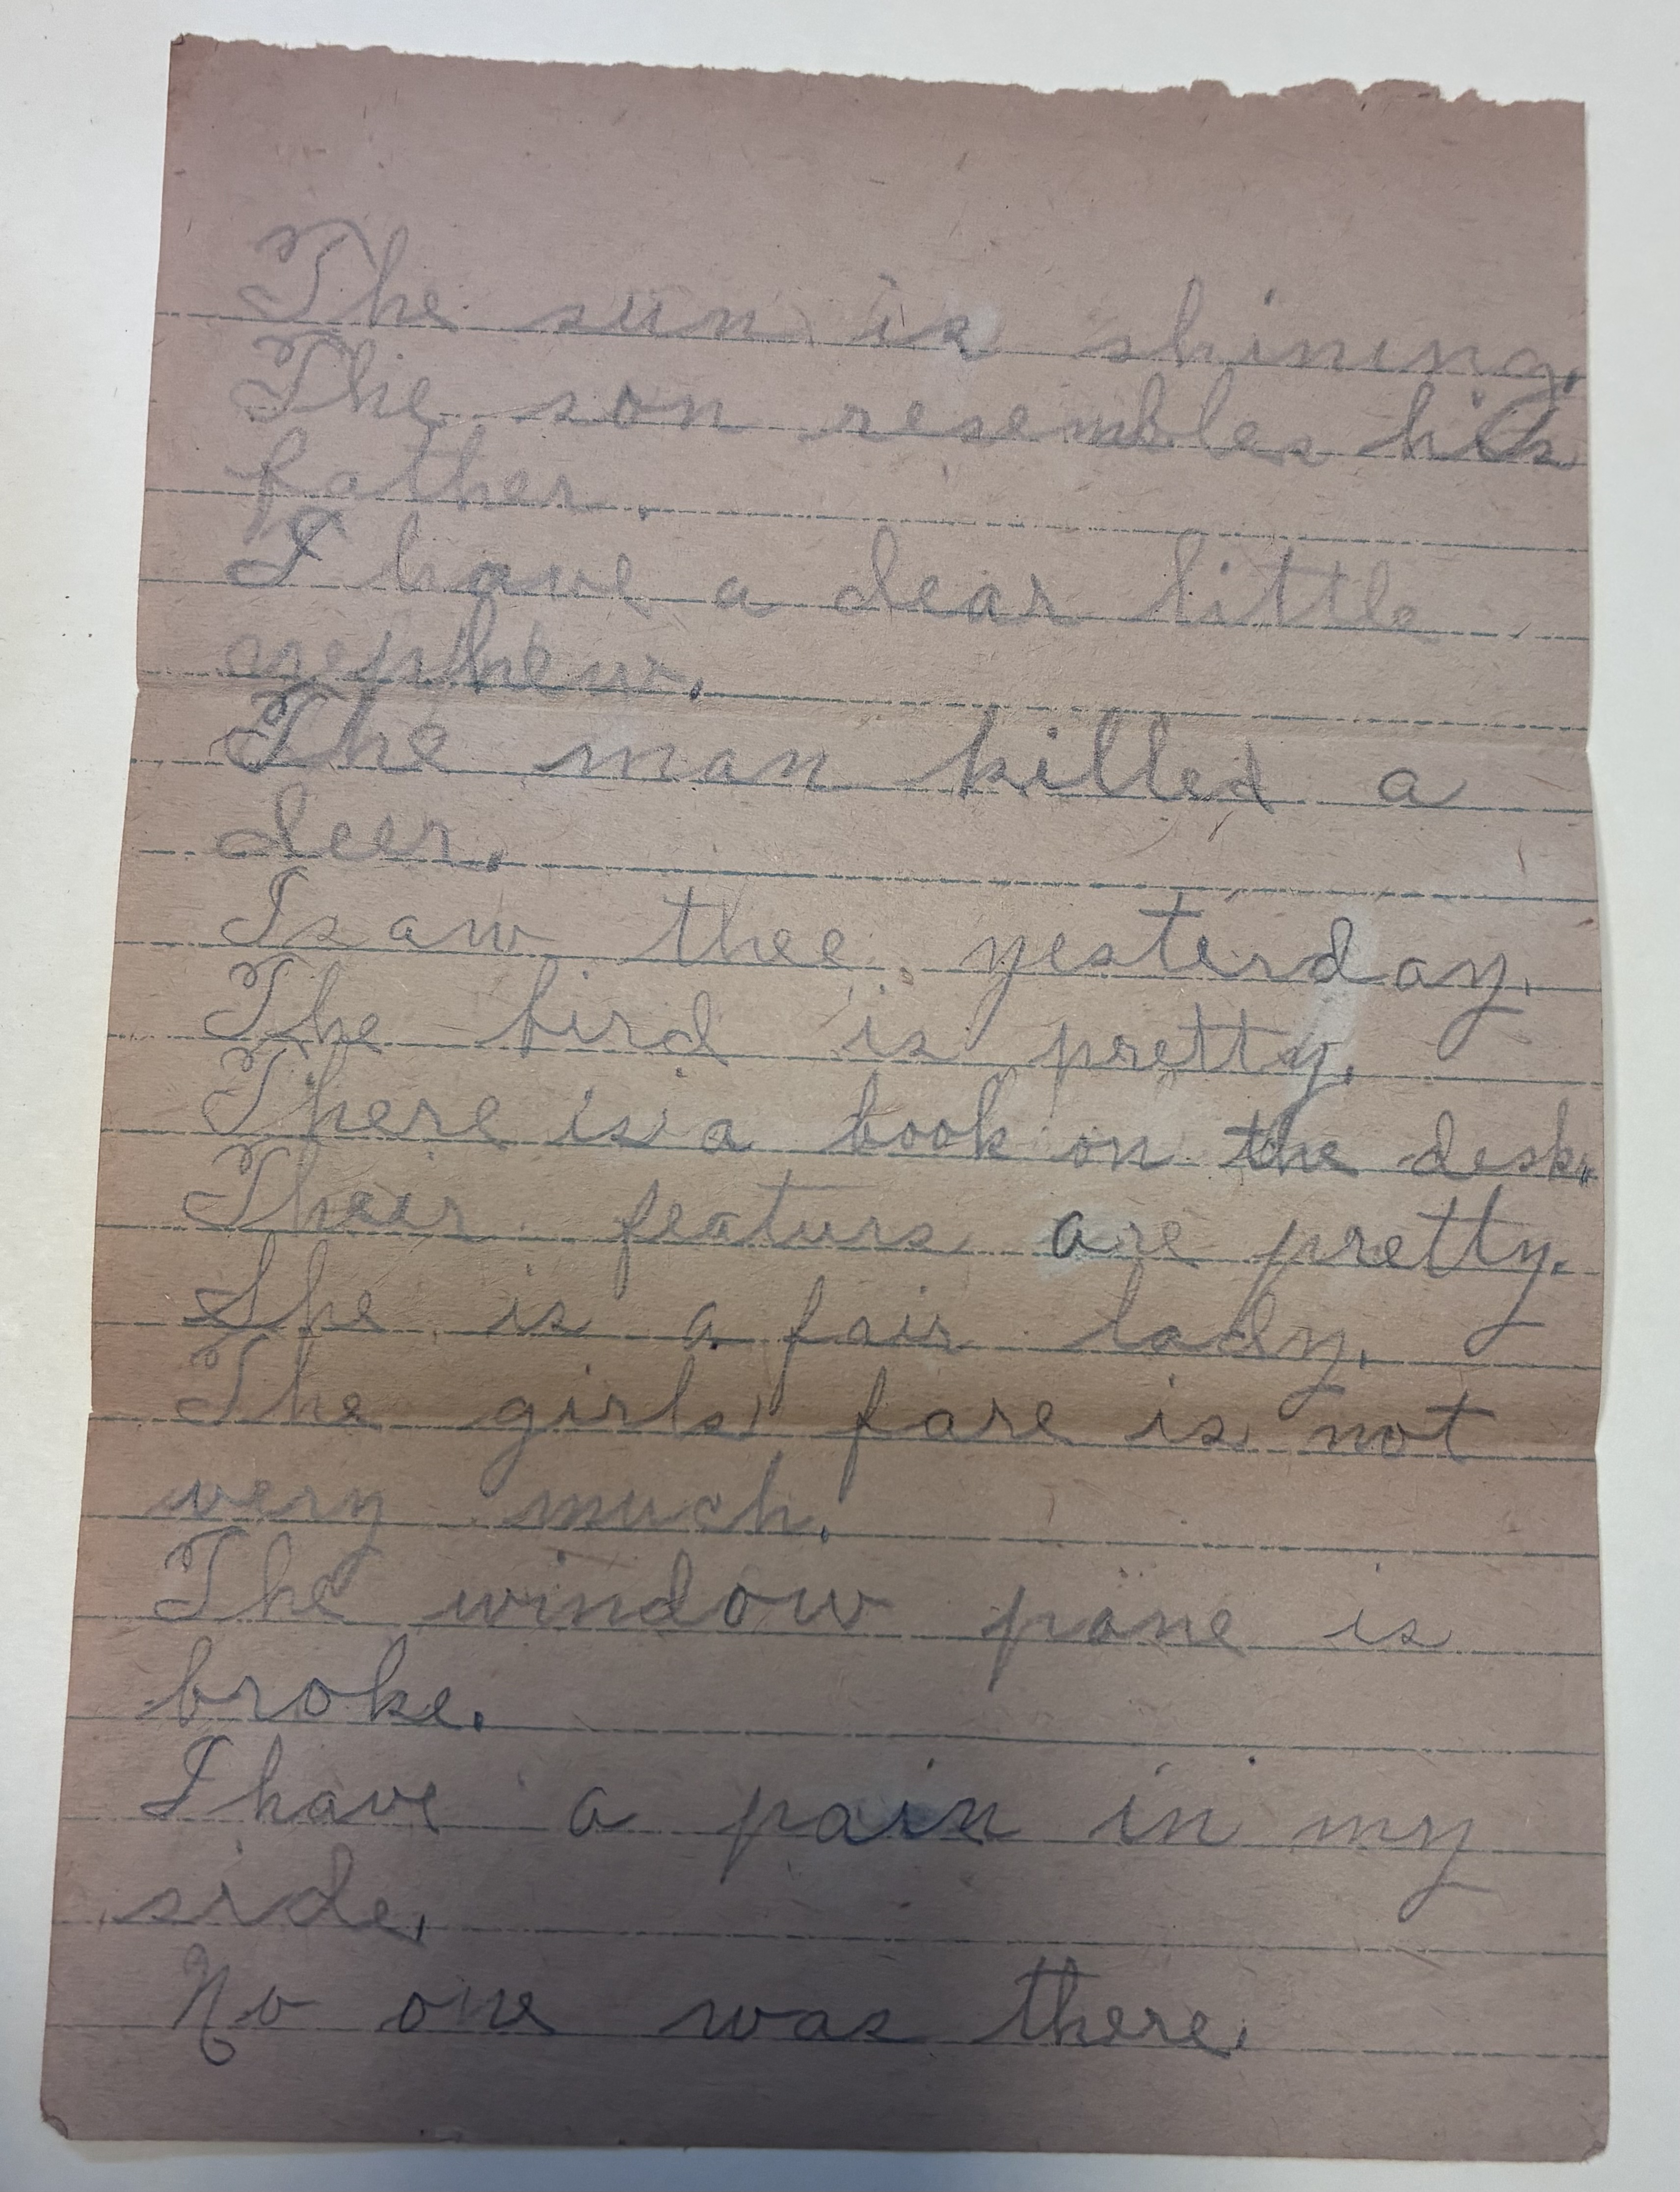 The sun is shining.
The son resembles his
father.
I have a dear little
nephew.
The man killed a
deer.
I saw thee yesterday.
The bird is pretty.
There is a book on the desk.
Their featurs are pretty.
She is a fair lady.
The girls' fare is not
very much.
The window pane is
broke.
I have a pain in my
side.
No one was there.